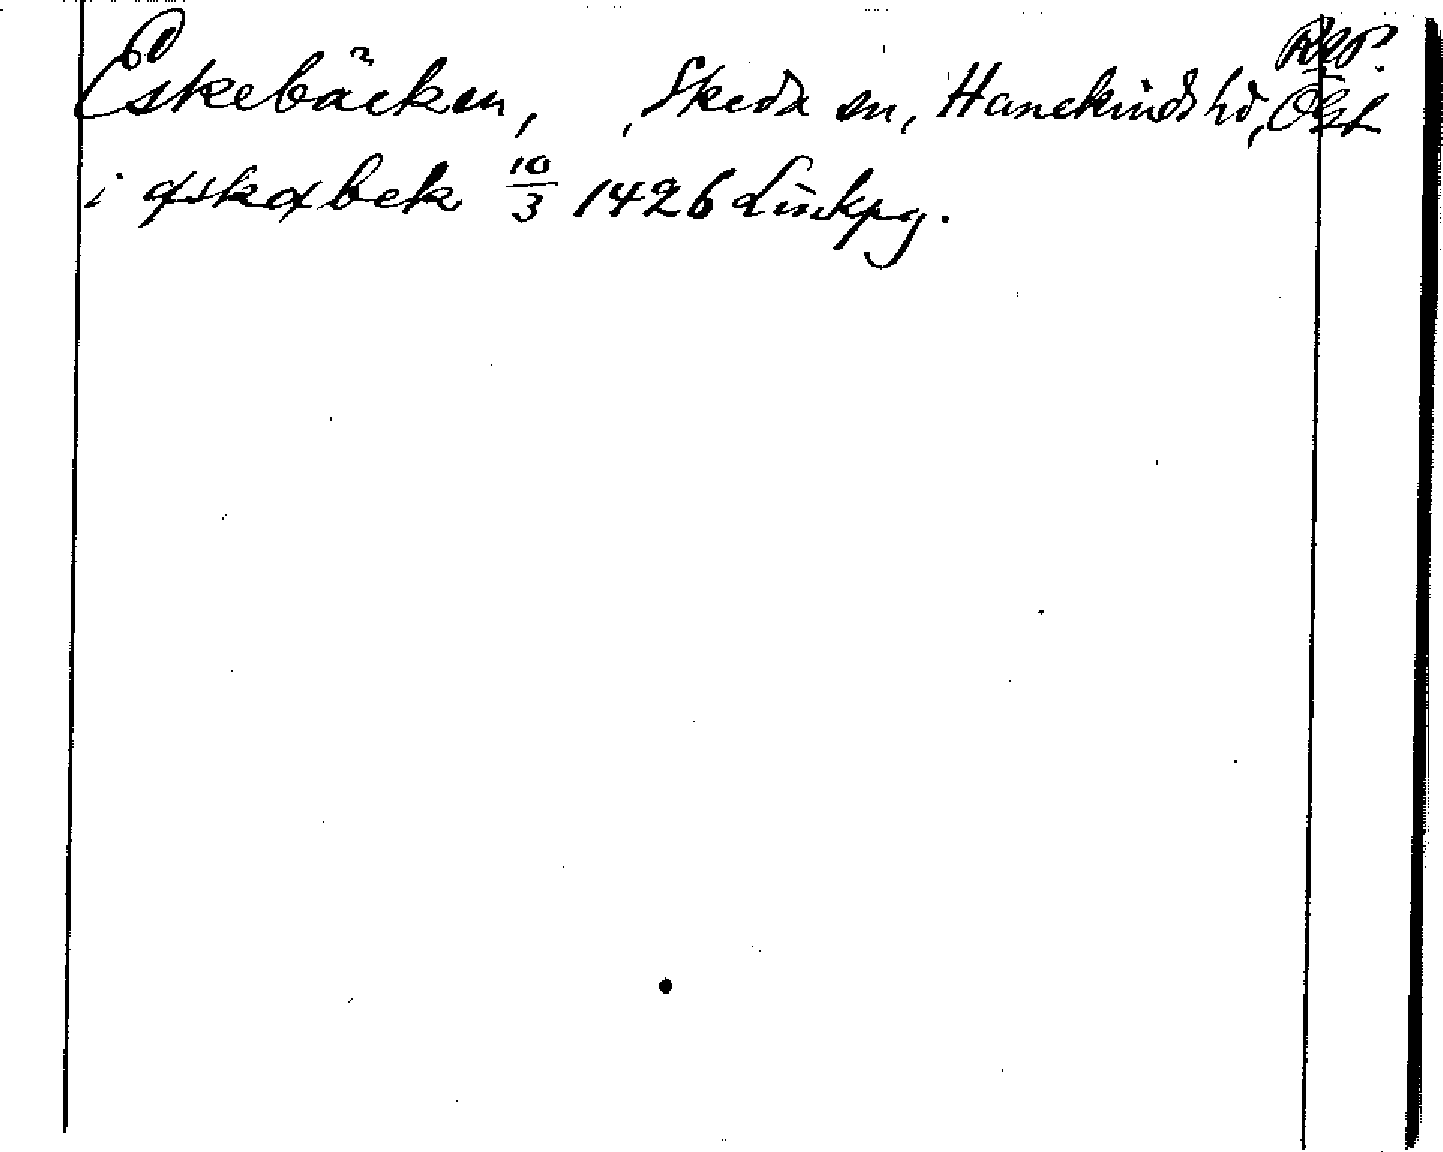 Eskebäcken, , Skeda sn, Hanekinds hd, Österg
i æskæbek 10/3 1426 Linkpg.